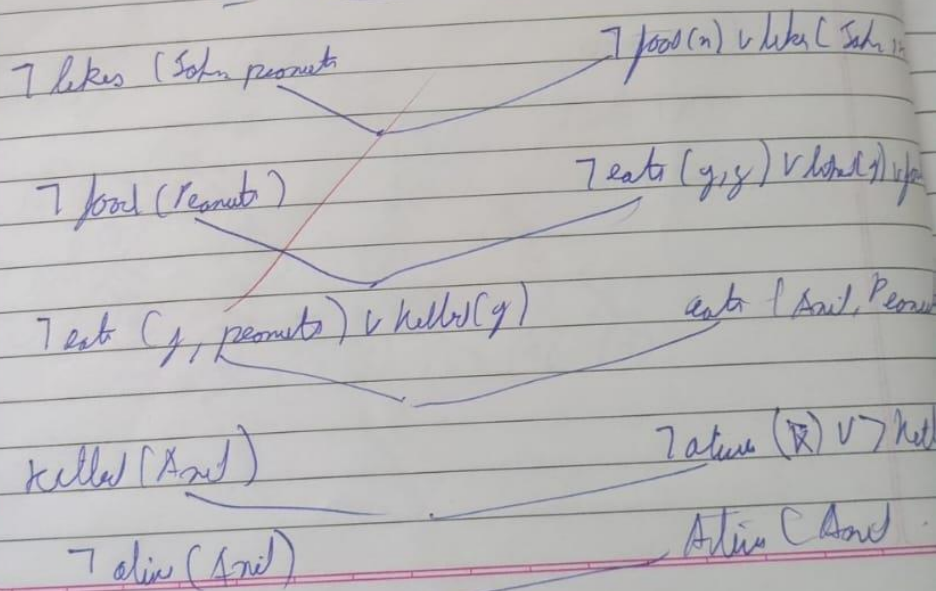 ¬ likes (John peonuts ¬ food(x) ∨ likes ( John,
¬ food (Peanuts) ¬ eats (y,z) ∨ killed(y) ∨ foo
¬ eats (y, peonuts) ∨ killed(y) eats ( Anil, Peanu
killed (Anil) ¬ alive (k) ∨ ¬ kill
¬ alive (Anil) Alive ( Anil